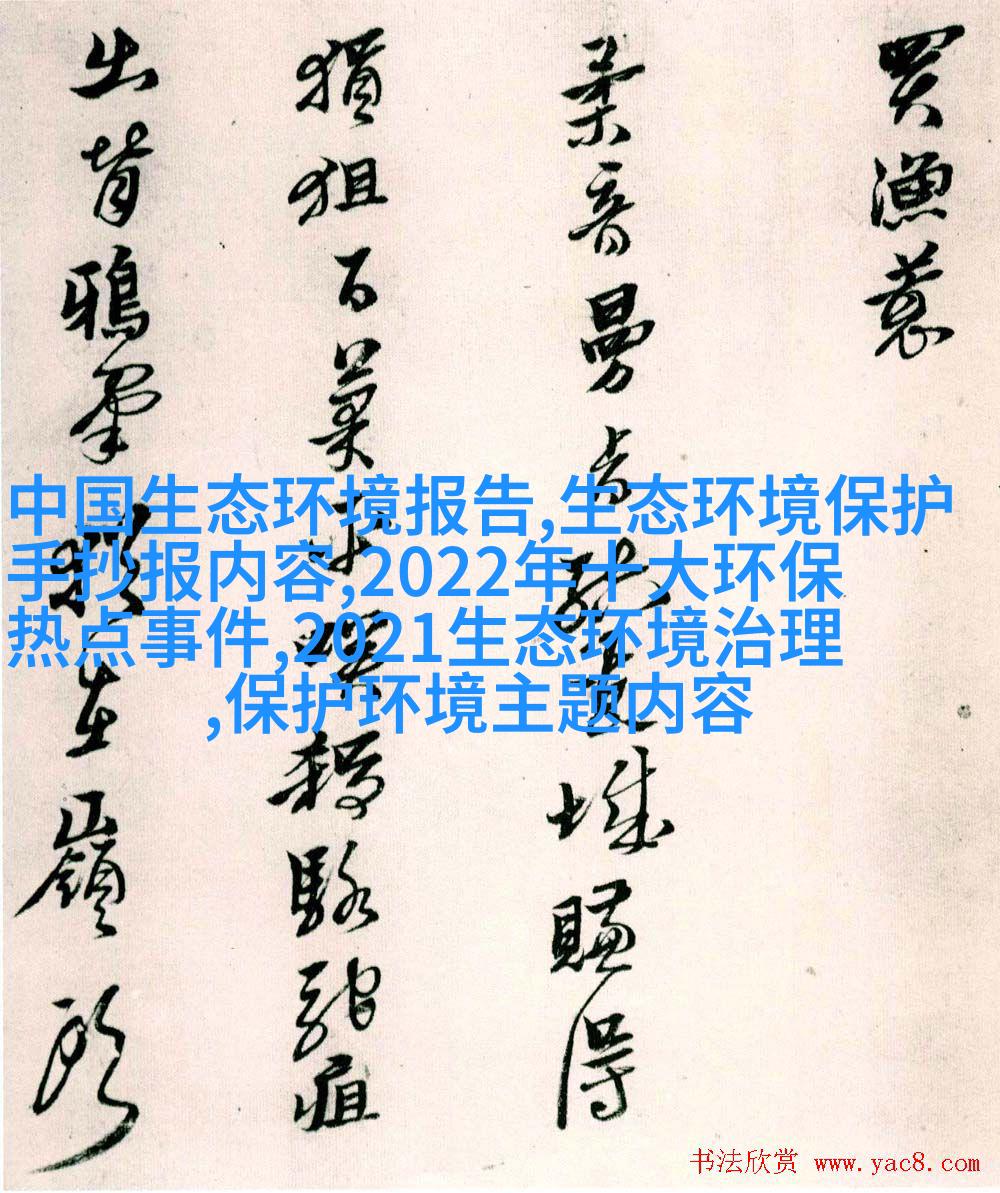 買漁蓑
柔音曼 城賺得
狙百 駱駝疽
出背鴉 在嶺
中国生态环境报告,生态环境保护
手抄报内容,2022年十大环保
热点事件,2021生态环境治理
,保护环境主题内容
书法欣赏 www.yac8.com